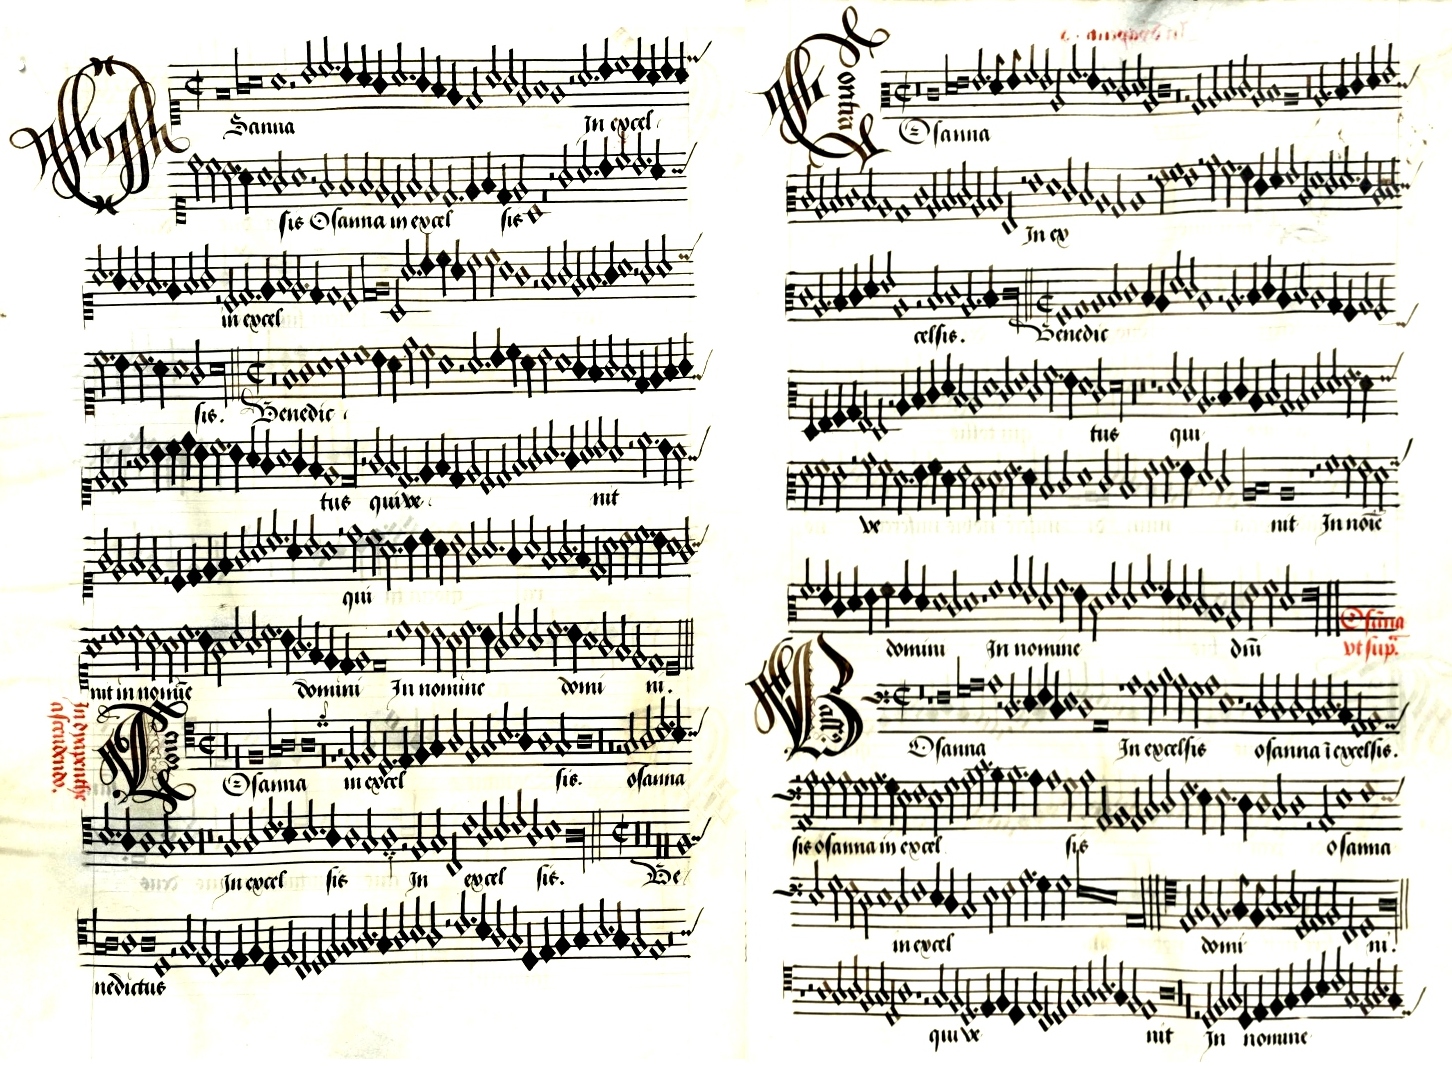 Osanna In excel
sis Osanna in excel sis
in excel
sis. Benedic
tus qui ve nit
qui
nit in nomine domini In nomine domi ni.
Tenor
In dyapenthe
ascendendo.
Osanna in excel sis. osanna
In excel sis In excel sis. Be
nedictus
Contra
Osanna
In ex
celsis. Benedic
tus qui
ve nit In noīe
domini In nomine dñi
Osāna
vt sup.
Basse
Osanna In excelsis osanna ī excelsis.
sis osanna in excel sis osanna
in excel domi ni.
qui ve nit In nomine